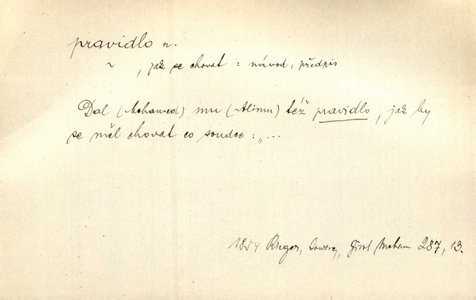 pravidlo n.
~ , jak se chovat = návod, předpis
Dal (Mohamed) mu (Alimu) též pravidlo, jak by
se měl chovat co soudce: „...
18 Rieger, 287, 13.